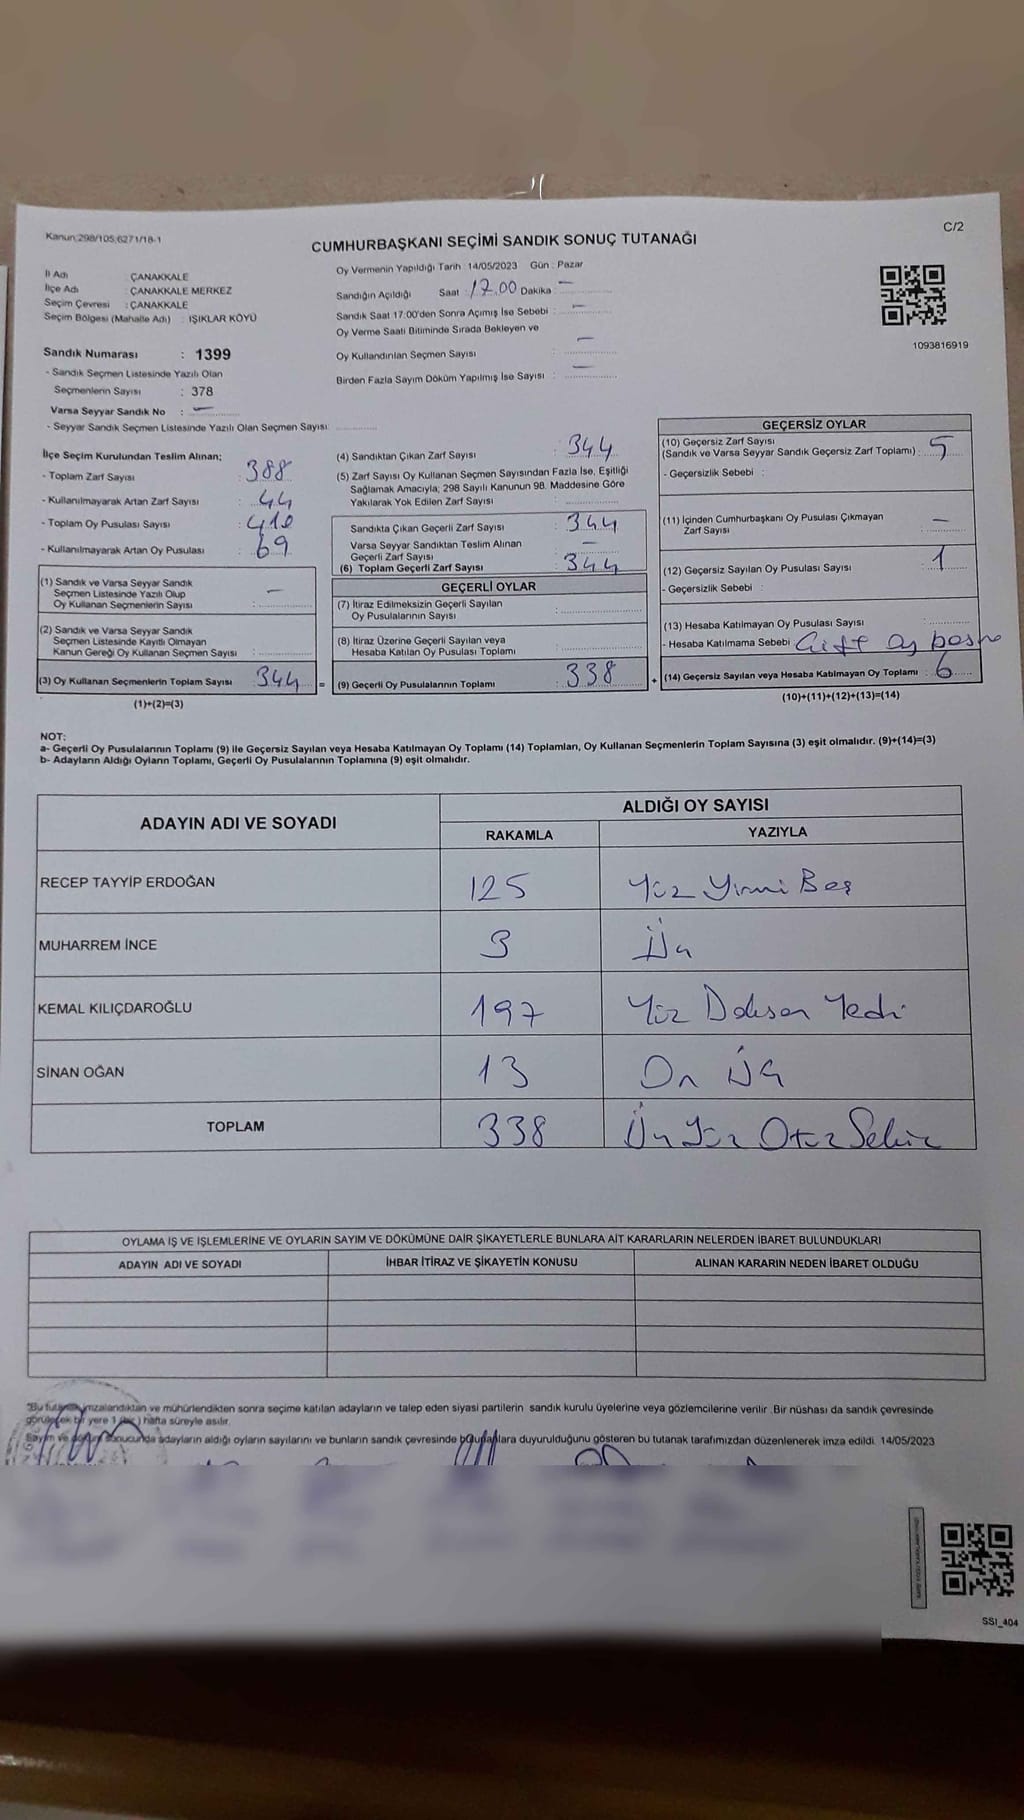 Kanun:298/105,6271/18-1
C/2
CUMHURBAŞKANI SEÇİMİ SANDIK SONUÇ TUTANAĞI
İl Adı : ÇANAKKALE
İlçe Adı : ÇANAKKALE MERKEZ
Seçim Çevresi : ÇANAKKALE
Seçim Bölgesi (Mahalle Adı) : IŞIKLAR KÖYÜ
Sandık Numarası : 1399
- Sandık Seçmen Listesinde Yazılı Olan
Seçmenlerin Sayısı : 378
Varsa Seyyar Sandık No : —
- Seyyar Sandık Seçmen Listesinde Yazılı Olan Seçmen Sayısı:
Oy Vermenin Yapıldığı Tarih : 14/05/2023 Gün : Pazar
Sandığın Açıldığı Saat : 17.00 Dakika : —
Sandık Saat 17:00'den Sonra Açımış İse Sebebi : —
Oy Verme Saati Bitiminde Sırada Bekleyen ve
Oy Kullandırılan Seçmen Sayısı : —
Birden Fazla Sayım Döküm Yapılmış İse Sayısı : —
1093816919
İlçe Seçim Kurulundan Teslim Alınan;
- Toplam Zarf Sayısı : 388
- Kullanılmayarak Artan Zarf Sayısı : 44
- Toplam Oy Pusulası Sayısı : 410
- Kullanılmayarak Artan Oy Pusulası : 69
(1) Sandık ve Varsa Seyyar Sandık
Seçmen Listesinde Yazılı Olup
Oy Kullanan Seçmenlerin Sayısı : —
(2) Sandık ve Varsa Seyyar Sandık
Seçmen Listesinde Kayıtlı Olmayan
Kanun Gereği Oy Kullanan Seçmen Sayısı :
(3) Oy Kullanan Seçmenlerin Toplam Sayısı : 344 =
(1)+(2)=(3)
(4) Sandıktan Çıkan Zarf Sayısı : 344
(5) Zarf Sayısı Oy Kullanan Seçmen Sayısından Fazla İse, Eşitliği
Sağlamak Amacıyla; 298 Sayılı Kanunun 98. Maddesine Göre
Yakılarak Yok Edilen Zarf Sayısı :
Sandıkta Çıkan Geçerli Zarf Sayısı : 344
Varsa Seyyar Sandıktan Teslim Alınan
Geçerli Zarf Sayısı : —
(6) Toplam Geçerli Zarf Sayısı : 344
GEÇERLİ OYLAR
(7) İtiraz Edilmeksizin Geçerli Sayılan
Oy Pusulalarının Sayısı :
(8) İtiraz Üzerine Geçerli Sayılan veya
Hesaba Katılan Oy Pusulası Toplamı :
(9) Geçerli Oy Pusulalarının Toplamı : 338 +
GEÇERSİZ OYLAR
(10) Geçersiz Zarf Sayısı
(Sandık ve Varsa Seyyar Sandık Geçersiz Zarf Toplamı) : 5
- Geçersizlik Sebebi :
(11) İçinden Cumhurbaşkanı Oy Pusulası Çıkmayan
Zarf Sayısı : —
(12) Geçersiz Sayılan Oy Pusulası Sayısı : 1
- Geçersizlik Sebebi :
(13) Hesaba Katılmayan Oy Pusulası Sayısı :
- Hesaba Katılmama Sebebi : Çift oy
(14) Geçersiz Sayılan veya Hesaba Katılmayan Oy Toplamı : 6
(10)+(11)+(12)+(13)=(14)
NOT:
a- Geçerli Oy Pusulalarının Toplamı (9) ile Geçersiz Sayılan veya Hesaba Katılmayan Oy Toplamı (14) Toplamları, Oy Kullanan Seçmenlerin Toplam Sayısına (3) eşit olmalıdır. (9)+(14)=(3)
b- Adayların Aldığı Oyların Toplamı, Geçerli Oy Pusulalarının Toplamına (9) eşit olmalıdır.
ADAYIN ADI VE SOYADI
ALDIĞI OY SAYISI
RAKAMLA YAZIYLA
RECEP TAYYİP ERDOĞAN 125 Yüz Yirmi Beş
MUHARREM İNCE 3 Üç
KEMAL KILIÇDAROĞLU 197 Yüz Doksan Yedi
SİNAN OĞAN 13 On Üç
TOPLAM 338 Üç Yüz Otuz Sekiz
OYLAMA İŞ VE İŞLEMLERİNE VE OYLARIN SAYIM VE DÖKÜMÜNE DAİR ŞİKAYETLERLE BUNLARA AİT KARARLARIN NELERDEN İBARET BULUNDUKLARI
ADAYIN ADI VE SOYADI İHBAR İTİRAZ VE ŞİKAYETİN KONUSU ALINAN KARARIN NEDEN İBARET OLDUĞU
"Bu tutanak imzalandıktan ve mühürlendikten sonra seçime katılan adayların ve talep eden siyasi partilerin sandık kurulu üyelerine veya gözlemcilerine verilir. Bir nüshası da sandık çevresinde
görülecek bir yere 1 (bir) hafta süreyle asılır.
Sayım ve döküm sonucunda adayların aldığı oyların sayılarını ve bunların sandık çevresinde bulunanlara duyurulduğunu gösteren bu tutanak tarafımızdan düzenlenerek imza edildi. 14/05/2023
SSI_404